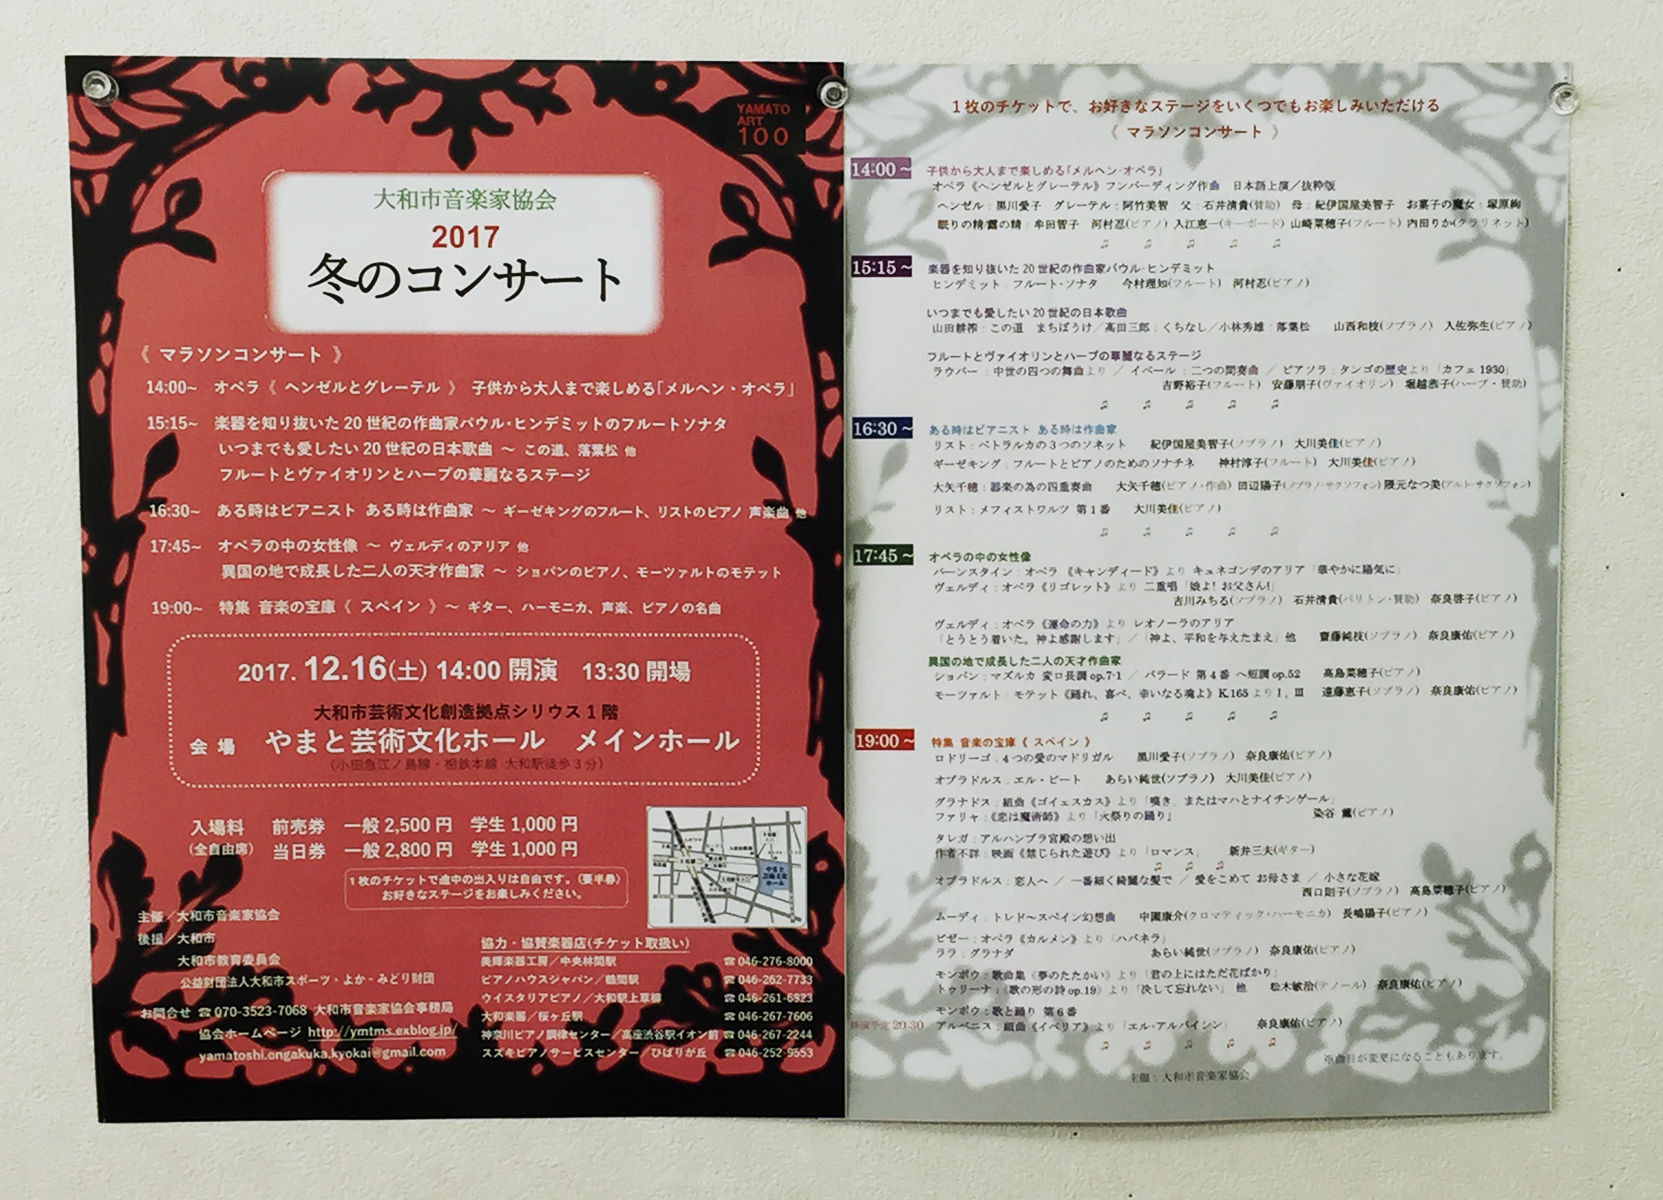 YAMATO
ART
100
大和市音楽家協会
2017
冬のコンサート
《 マラソンコンサート 》
14:00~ オペラ《 ヘンゼルとグレーテル 》 子供から大人まで楽しめる「メルヘン・オペラ」
15:15~ 楽器を知り抜いた 20 世紀の作曲家パウル・ヒンデミットのフルートソナタ
いつまでも愛したい 20 世紀の日本歌曲 ～ この道、落葉松 他
フルートとヴァイオリンとハープの華麗なるステージ
16:30~ ある時はピアニスト ある時は作曲家 ～ ギーゼキングのフルート、リストのピアノ 声楽曲 他
17:45~ オペラの中の女性像 ～ ヴェルディのアリア 他
異国の地で成長した二人の天才作曲家 ～ ショパンのピアノ、モーツァルトのモテット
19:00~ 特集 音楽の宝庫《 スペイン 》～ ギター、ハーモニカ、声楽、ピアノの名曲
2017. 12.16(土) 14:00 開演 13:30 開場
大和市芸術文化創造拠点シリウス 1 階
会 場 やまと芸術文化ホール メインホール
(小田急江ノ島線・相鉄本線 大和駅徒歩 3 分)
入場料 前売券 一般 2,500 円 学生 1,000 円
(全自由席) 当日券 一般 2,800 円 学生 1,000 円
1 枚のチケットで途中の出入りは自由です。(要半券)
お好きなステージをお楽しみください。
やまと
芸術文化
ホール
主催／大和市音楽家協会
後援／大和市
大和市教育委員会
公益財団法人大和市スポーツ・よか・みどり財団
お問合せ ☎070-3523-7068 大和市音楽家協会事務局
協会ホームページ http://ymtms.exblog.jp/
yamatoshi.ongakuka.kyokai@gmail.com
協力・協賛楽器店(チケット取扱い)
美輝楽器工房／中央林間駅 ☎046-276-8000
ピアノハウスジャパン／鶴間駅 ☎046-262-7733
ウイスタリアピアノ／大和駅上草柳 ☎046-261-6823
大和楽器／桜ヶ丘駅 ☎046-267-7606
神奈川ピアノ調律センター／高座渋谷駅イオン前 ☎046-267-2244
スズキピアノサービスセンター／ひばりが丘 ☎046-252-9553
1 枚のチケットで、お好きなステージをいくつでもお楽しみいただける
《 マラソンコンサート 》
14:00 ~ 子供から大人まで楽しめる「メルヘン・オペラ」
オペラ《ヘンゼルとグレーテル》フンパーディング作曲 日本語上演／抜粋版
ヘンゼル：黒川愛子 グレーテル：阿竹美智 父：石井清貴(賛助) 母：紀伊国屋美智子 お菓子の魔女：塚原絢
眠りの精/露の精：牟田智子 河村忍(ピアノ) 入江恵一(キーボード) 山崎菜穂子(フルート) 内田りか(クラリネット)
15:15 ~ 楽器を知り抜いた 20 世紀の作曲家パウル・ヒンデミット
ヒンデミット：フルート・ソナタ 今村理知(フルート) 河村忍(ピアノ)
いつまでも愛したい 20 世紀の日本歌曲
山田耕筰：この道 まちぼうけ／高田三郎：くちなし／小林秀雄：落葉松 山西和枝(ソプラノ) 入佐弥生(ピアノ)
フルートとヴァイオリンとハープの華麗なるステージ
ラウバー：中世の四つの舞曲より ／ イベール：二つの間奏曲 ／ ピアソラ：タンゴの歴史より「カフェ 1930」
吉野裕子(フルート) 安藤朋子(ヴァイオリン) 堀越恭子(ハープ・賛助)
16:30 ~ ある時はピアニスト ある時は作曲家
リスト：ペトラルカの３つのソネット 紀伊国屋美智子(ソプラノ) 大川美佳(ピアノ)
ギーゼキング：フルートとピアノのためのソナチネ 神村淳子(フルート) 大川美佳(ピアノ)
大矢千穂：器楽の為の四重奏曲 大矢千穂(ピアノ・作曲) 田辺陽子(ソプラノ・サクソフォン) 隈元なつ美(アルト・サクソフォン)
リスト：メフィストワルツ 第 1 番 大川美佳(ピアノ)
17:45 ~ オペラの中の女性像
バーンスタイン：オペラ 《キャンディード》より キュネゴンデのアリア「華やかに陽気に」
ヴェルディ：オペラ《リゴレット》より 二重唱「娘よ！お父さん!」
吉川みちる(ソプラノ) 石井清貴(バリトン・賛助) 奈良啓子(ピアノ)
ヴェルディ：オペラ《運命の力》より レオノーラのアリア
「とうとう着いた。神よ感謝します」／「神よ、平和を与えたまえ」他 齋藤純枝(ソプラノ) 奈良康佑(ピアノ)
異国の地で成長した二人の天才作曲家
ショパン：マズルカ 変ロ長調 op.7-1 ／ バラード 第 4 番 ヘ短調 op.52 高島菜穂子(ピアノ)
モーツァルト：モテット《踊れ、喜べ、幸いなる魂よ》K.165 より I, III 遠藤恵子(ソプラノ) 奈良康佑(ピアノ)
19:00 ~ 特集 音楽の宝庫《 スペイン 》
ロドリーゴ：4 つの愛のマドリガル 黒川愛子(ソプラノ) 奈良康佑(ピアノ)
オブラドルス：エル・ビート あらい純世(ソプラノ) 大川美佳(ピアノ)
グラナドス：組曲《ゴイェスカス》より「嘆き、またはマハとナイチンゲール」
ファリャ：《恋は魔術師》より「火祭りの踊り」 染谷 薫(ピアノ)
タレガ：アルハンブラ宮殿の想い出
作者不詳：映画《禁じられた遊び》より「ロマンス」 新井三夫(ギター)
オブラドルス：恋人へ ／ 一番細く綺麗な髪で ／ 愛をこめて お母さま ／ 小さな花嫁
西口則子(ソプラノ) 高島菜穂子(ピアノ)
ムーディ：トレド～スペイン幻想曲 中園康介(クロマティック・ハーモニカ) 長嶋陽子(ピアノ)
ビゼー：オペラ《カルメン》より「ハバネラ」
ララ：グラナダ あらい純世(ソプラノ) 奈良康佑(ピアノ)
モンポウ：歌曲集《夢のたたかい》より「君の上にはただ花ばかり」
トゥリーナ：《歌の形の詩 op.19》より「決して忘れない」 他 松木敏治(テノール) 奈良康佑(ピアノ)
モンポウ：歌と踊り 第 6 番
終演予定 20:30 アルベニス：組曲《イベリア》より「エル・アルバイシン」 奈良康佑(ピアノ)
※曲目が変更になることもあります。
主催：大和市音楽家協会